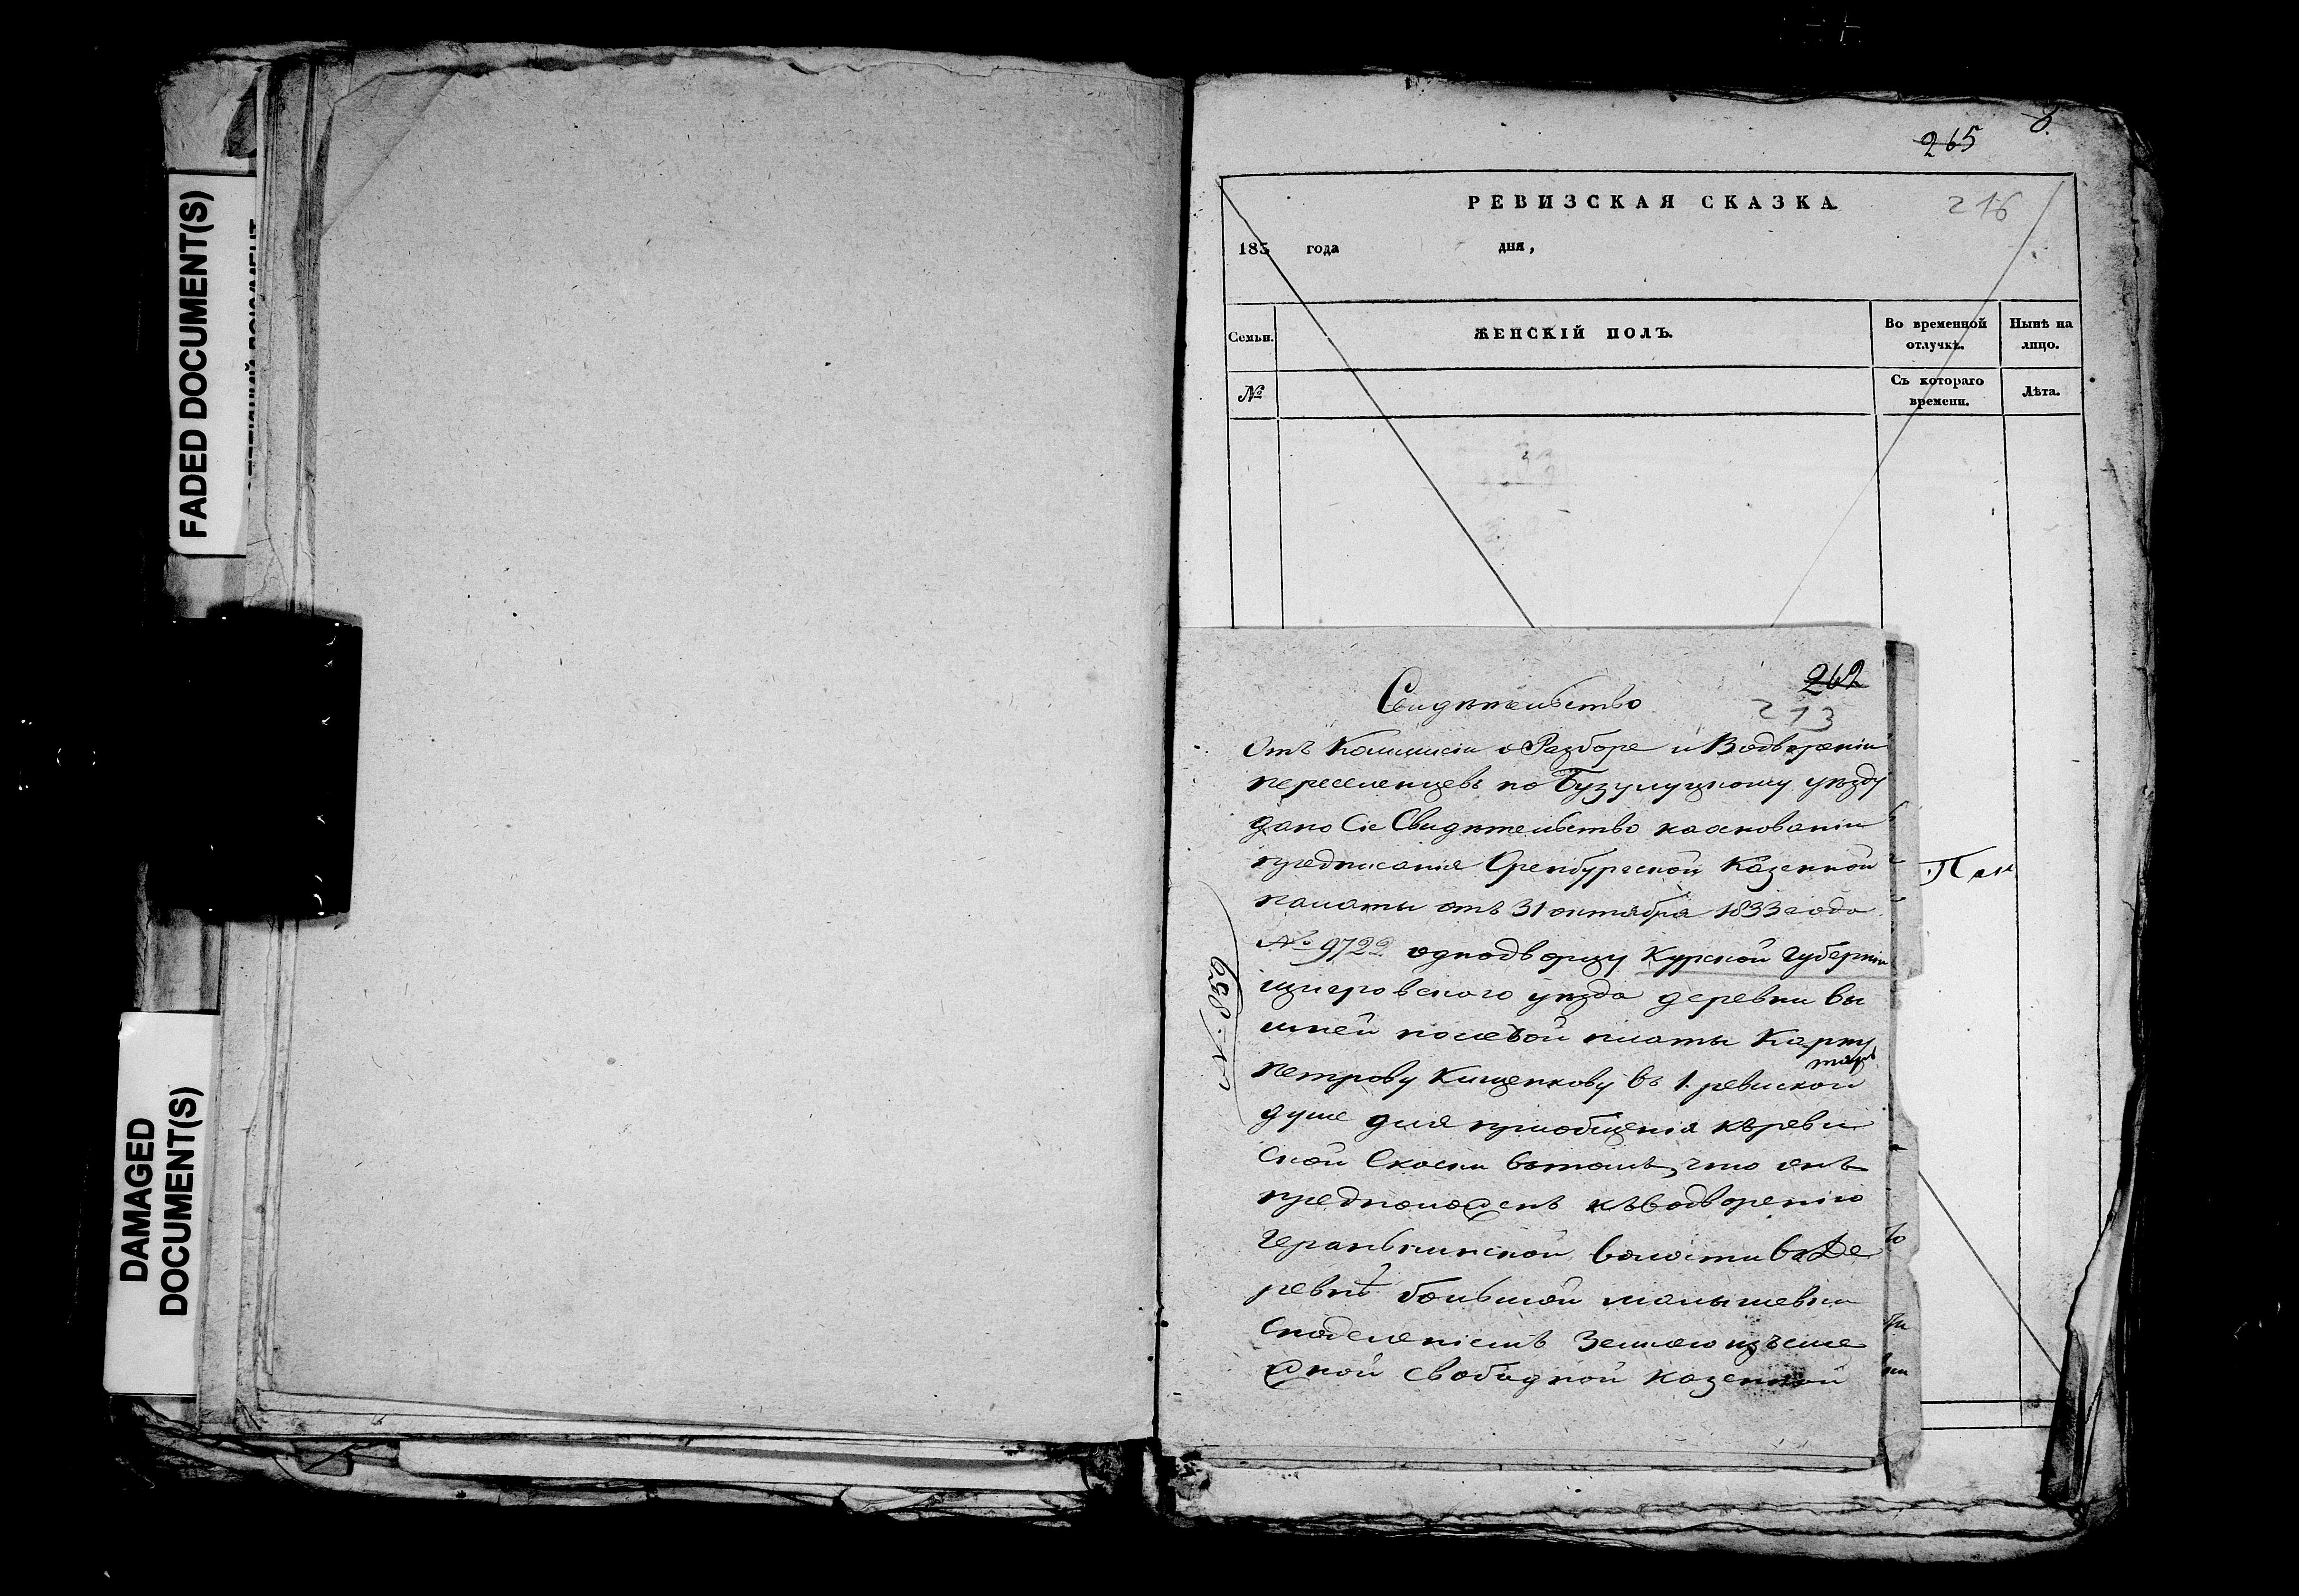 FADED DOCUMENT(S)
DAMAGED
DOCUMENT(S)
8.
265
РЕВИЗСКАЯ СКАЗКА
216
185 года дня,
Семьи. ЖЕНСКІЙ ПОЛЪ. Во временной отлучкѣ. Нынѣ на лицо.
№ Съ котораго времени. Лѣта.
262
Свидѣтельство
213
Отъ Комиисіи о Разборе и Водвореніи
переселенцевъ по Бузулуцкому уѣзду
дано Сіе Свидѣтельство наоснованіи
предписанія Оренбургской Казенной
палаты отъ 31 октября 1833 года
№ 9722 однодворцу Курской Губерніи
щигровского уѣзда деревни Вы
шней платы Карпу
Петрову Кищенкову въ 1. ревиской
душе для приобщенія кѣреви
ской Скаски втомъ, что онъ
предположенъ къводворенію
волости вДе
ревнѣ большой малышевки
Снаделеніемъ Землею изъсме
жной свободной казенной
№ 839